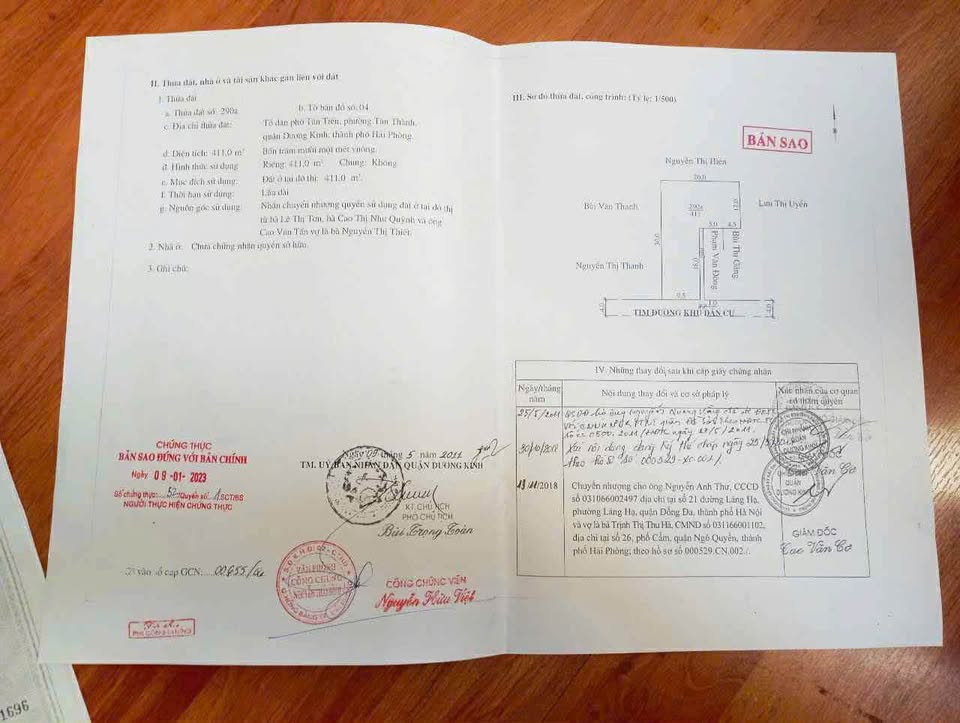 II. Thửa đất, nhà ở và tài sản khác gắn liền với đất
1. Thửa đất
a. Thửa đất số: 290a
b. Tờ bản đồ số: 04
c. Địa chỉ thửa đất:
Tổ dân phố Tân Tiến, phường Tân Thành,
quận Dương Kinh, thành phố Hải Phòng.
d. Diện tích: 411,0 m²
Bốn trăm mười một mét vuông.
đ. Hình thức sử dụng
Riêng: 411,0 m²
Chung: Không
e. Mục đích sử dụng:
Đất ở tại đô thị: 411,0 m².
f. Thời hạn sử dụng:
Lâu dài
g. Nguồn gốc sử dụng:
Nhận chuyển nhượng quyền sử dụng đất ở tại đô thị
từ bà Lê Thị Tơn, bà Cao Thị Như Quỳnh và ông
Cao Văn Tấn vợ là bà Nguyễn Thị Thiết.
2. Nhà ở: Chưa chứng nhận quyền sở hữu.
3. Ghi chú:
CHỨNG THỰC
BẢN SAO ĐÚNG VỚI BẢN CHÍNH
Ngày 09-01-2023
Số chứng thực: 52 Quyển số: 1 SCT/BS
NGƯỜI THỰC HIỆN CHỨNG THỰC
Ngày 09 tháng 5 năm 2011
TM. UỶ BAN NHÂN DÂN QUẬN DƯƠNG KINH
KT. CHỦ TỊCH
PHÓ CHỦ TỊCH
Bùi Trọng Toàn
Số vào sổ cấp GCN: 00655
VĂN PHÒNG
CÔNG CHỨNG
CÔNG CHỨNG VIÊN
Nguyễn Hữu Việt
1696
III. Sơ đồ thửa đất, công trình: (Tỷ lệ: 1/500)
BẢN SAO
Nguyễn Thị Hiên
20,0
Bùi Văn Thanh
290a
411
12,0
Lưu Thị Uyển
5,0
4,5
30,0
Phạm Văn Đông
Bùi Thị Gừng
Nguyễn Thị Thanh
18,0
9,5
1,0
4,0
4,0
TIM ĐƯỜNG KHU DÂN CƯ
IV. Những thay đổi sau khi cấp giấy chứng nhận
Ngày/tháng
năm
Nội dung thay đổi và cơ sở pháp lý
Xác nhận của cơ quan
có thẩm quyền
25/5/2011
30/10/2018
Xóa nội dung đăng ký thế chấp ngày 25/5/2011
theo hồ sơ số 000529.XC.001/.
13/11/2018
Chuyển nhượng cho ông Nguyễn Anh Thư, CCCD
số 031066002497 địa chỉ tại số 21 đường Láng Hạ,
phường Láng Hạ, quận Đống Đa, thành phố Hà Nội
và vợ là bà Trịnh Thị Thu Hà, CMND số 031166001102,
địa chỉ tại số 26, phố Cấm, quận Ngô Quyền, thành
phố Hải Phòng; theo hồ sơ số 000529.CN.002./.
CHI NHÁNH
QUẬN
DƯƠNG KINH
GIÁM ĐỐC
Cao Văn Cơ